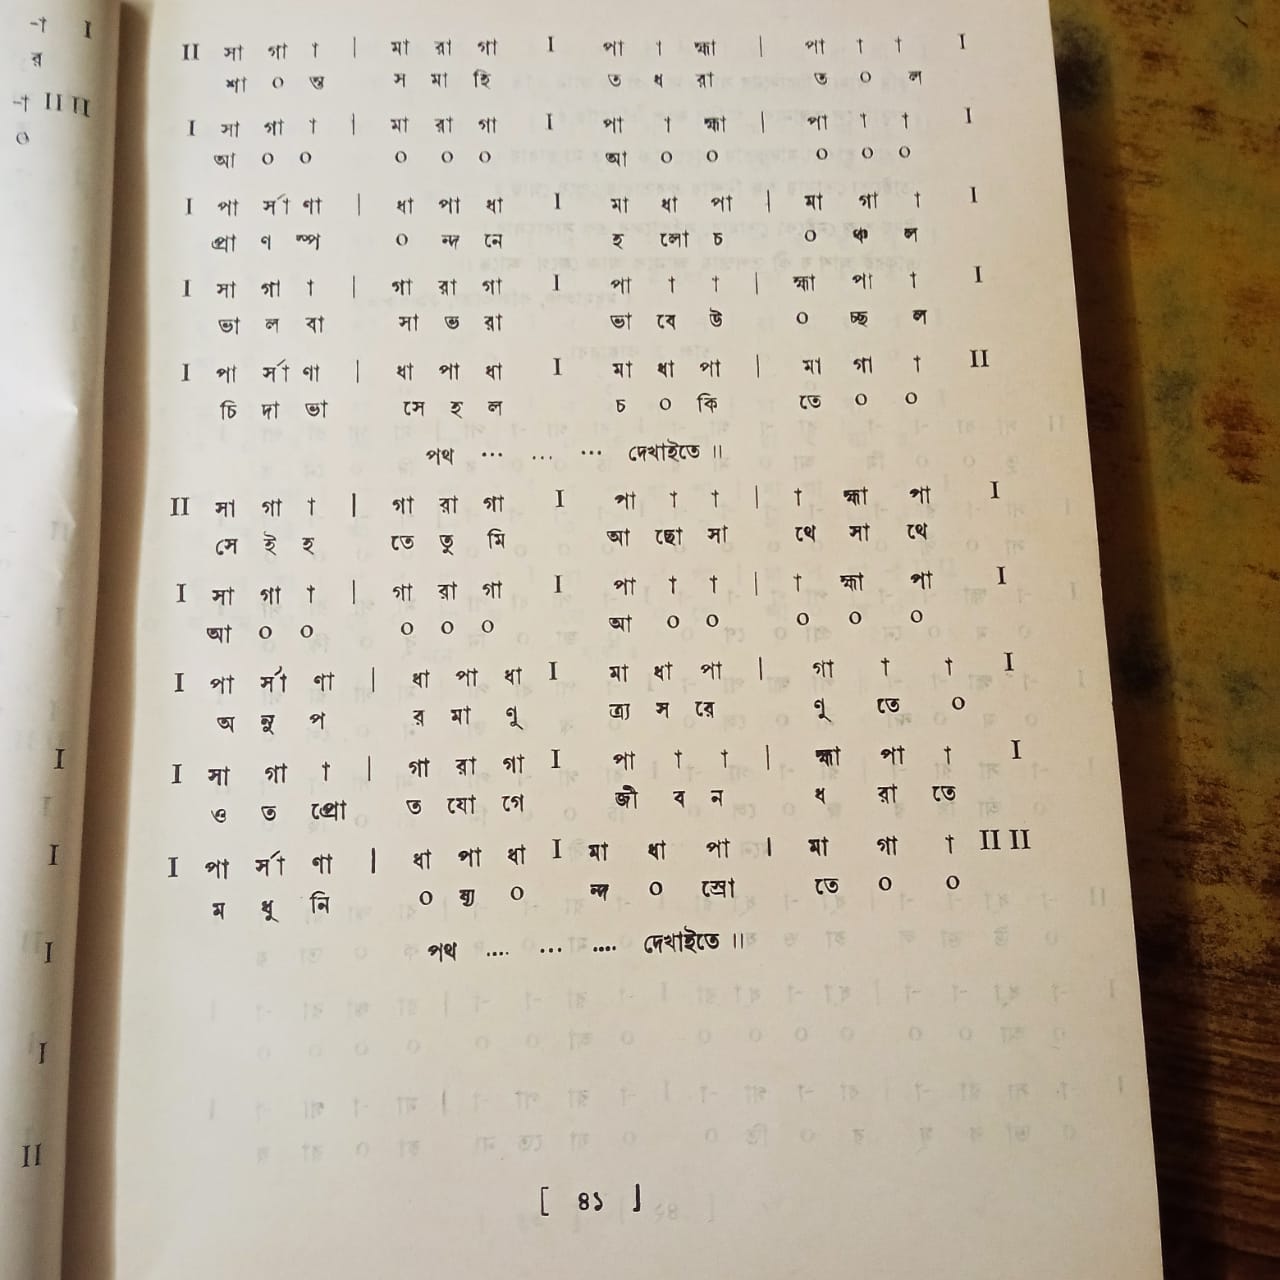 II সা গা া | মা রা গা I পা া হ্মা | পা া া I
শা ০ ন্ত স মা হি ত ধ রা ত ০ ল
I সা গা া | মা রা গা I পা া হ্মা | পা া া I
আ ০ ০ ০ ০ ০ আ ০ ০ ০ ০ ০
I পা র্সা ণা | ধা পা ধা I মা ধা পা | মা গা া I
প্রা ণ স্প ০ ন্দ নে হ লো চ ০ ঞ্চ ল
I সা গা া | গা রা গা I পা া া | হ্মা পা া I
ভা ল বা সা ভ রা ভা বে উ ০ চ্ছ ল
I পা র্সা ণা | ধা পা ধা I মা ধা পা | মা গা া II
চি দা ভা সে হ ল চ ০ কি তে ০ ০
পথ ... ... ... দেখাইতে ॥
II সা গা া | গা রা গা I পা া া | া হ্মা পা I
সে ই হ তে তু মি আ ছো সা থে সা থে
I সা গা া | গা রা গা I পা া া | া হ্মা পা I
আ ০ ০ ০ ০ ০ আ ০ ০ ০ ০ ০
I পা র্সা ণা | ধা পা ধা I মা ধা পা | গা া া I
অ নু প র মা ণূ ত্র্য স রে ণূ তে ০
I সা গা া | গা রা গা I পা া া | হ্মা পা া I
ও ত প্রো ত যো গে জী ব ন ধ রা তে
I পা র্সা ণা | ধা পা ধা I মা ধা পা | মা গা া II II
ম ধূ নি ০ ষ্য ০ ন্দ ০ স্রো তে ০ ০
পথ .... ... .... দেখাইতে ॥
[ ৪১ ]